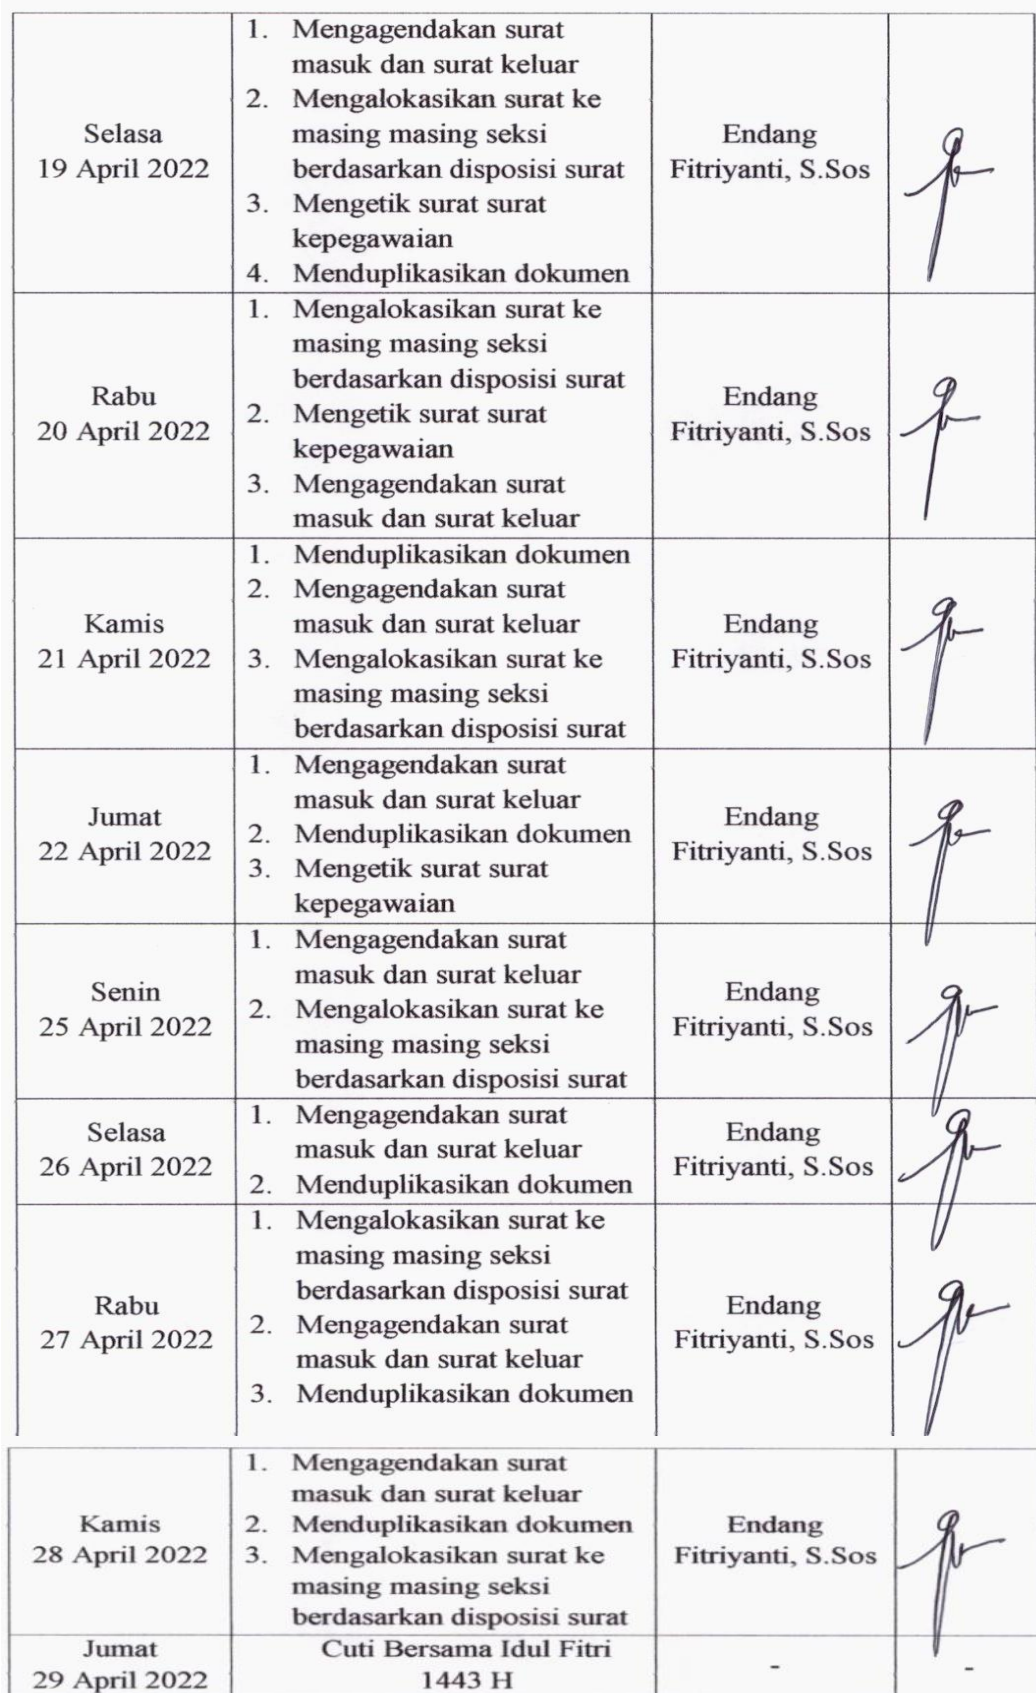 Selasa
19 April 2022
1. Mengagendakan surat
masuk dan surat keluar
2. Mengalokasikan surat ke
masing masing seksi
berdasarkan disposisi surat
3. Mengetik surat surat
kepegawaian
4. Menduplikasikan dokumen
Endang
Fitriyanti, S.Sos
Rabu
20 April 2022
1. Mengalokasikan surat ke
masing masing seksi
berdasarkan disposisi surat
2. Mengetik surat surat
kepegawaian
3. Mengagendakan surat
masuk dan surat keluar
Endang
Fitriyanti, S.Sos
Kamis
21 April 2022
1. Menduplikasikan dokumen
2. Mengagendakan surat
masuk dan surat keluar
3. Mengalokasikan surat ke
masing masing seksi
berdasarkan disposisi surat
Endang
Fitriyanti, S.Sos
Jumat
22 April 2022
1. Mengagendakan surat
masuk dan surat keluar
2. Menduplikasikan dokumen
3. Mengetik surat surat
kepegawaian
Endang
Fitriyanti, S.Sos
Senin
25 April 2022
1. Mengagendakan surat
masuk dan surat keluar
2. Mengalokasikan surat ke
masing masing seksi
berdasarkan disposisi surat
Endang
Fitriyanti, S.Sos
Selasa
26 April 2022
1. Mengagendakan surat
masuk dan surat keluar
2. Menduplikasikan dokumen
Endang
Fitriyanti, S.Sos
Rabu
27 April 2022
1. Mengalokasikan surat ke
masing masing seksi
berdasarkan disposisi surat
2. Mengagendakan surat
masuk dan surat keluar
3. Menduplikasikan dokumen
Endang
Fitriyanti, S.Sos
Kamis
28 April 2022
1. Mengagendakan surat
masuk dan surat keluar
2. Menduplikasikan dokumen
3. Mengalokasikan surat ke
masing masing seksi
berdasarkan disposisi surat
Endang
Fitriyanti, S.Sos
Jumat
29 April 2022
Cuti Bersama Idul Fitri
1443 H
-
-